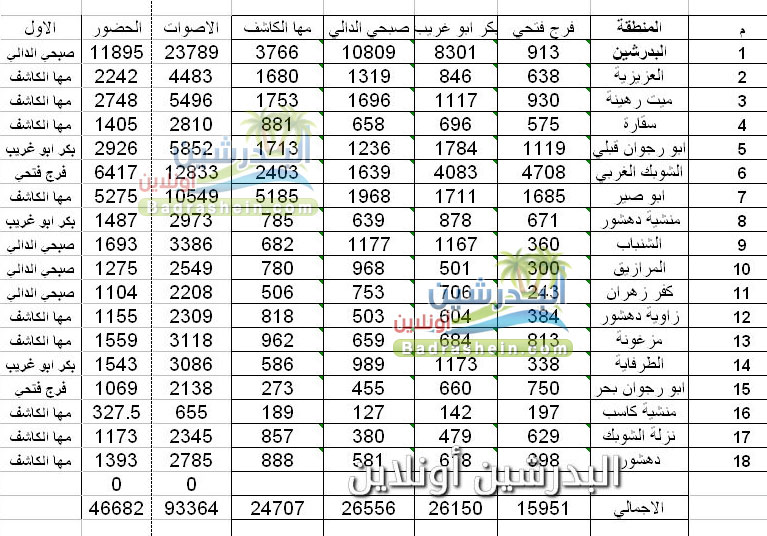 م المنطقة فرج فتحي بكر ابو غريب صبحي الدالي مها الكاشف الاصوات الحضور الاول
1 البدرشين 913 8301 10809 3766 23789 11895 صبحي الدالي
2 العزيزية 638 846 1319 1680 4483 2242 مها الكاشف
3 ميت رهينة 930 1117 1696 1753 5496 2748 مها الكاشف
4 سقارة 575 696 658 881 2810 1405 مها الكاشف
5 ابو رجوان قبلي 1119 1784 1236 1713 5852 2926 بكر ابو غريب
6 الشوبك الغربي 4708 4083 1639 2403 12833 6417 فرج فتحي
7 ابو صير 1685 1711 1968 5185 10549 5275 مها الكاشف
8 منشية دهشور 671 878 639 785 2973 1487 بكر ابو غريب
9 الشنباب 360 1167 1177 682 3386 1693 صبحي الدالي
10 المرازيق 300 501 968 780 2549 1275 صبحي الدالي
11 كفر زهران 243 706 753 506 2208 1104 صبحي الدالي
12 زاوية دهشور 384 604 503 818 2309 1155 مها الكاشف
13 مزغونة 813 684 659 962 3118 1559 مها الكاشف
14 الطرفاية 338 1173 989 586 3086 1543 بكر ابو غريب
15 ابو رجوان بحر 750 660 455 273 2138 1069 فرج فتحي
16 منشية كاسب 197 142 127 189 655 327.5 مها الكاشف
17 نزلة الشوبك 629 479 380 857 2345 1173 مها الكاشف
18 دهشور 698 618 581 888 2785 1393 مها الكاشف
0 0
الاجمالي 15951 26150 26556 24707 93364 46682
البدرشين أونلاين
Badrashein.com
البدرشين أونلاين
Badrashein.com
البدرشين أونلاين